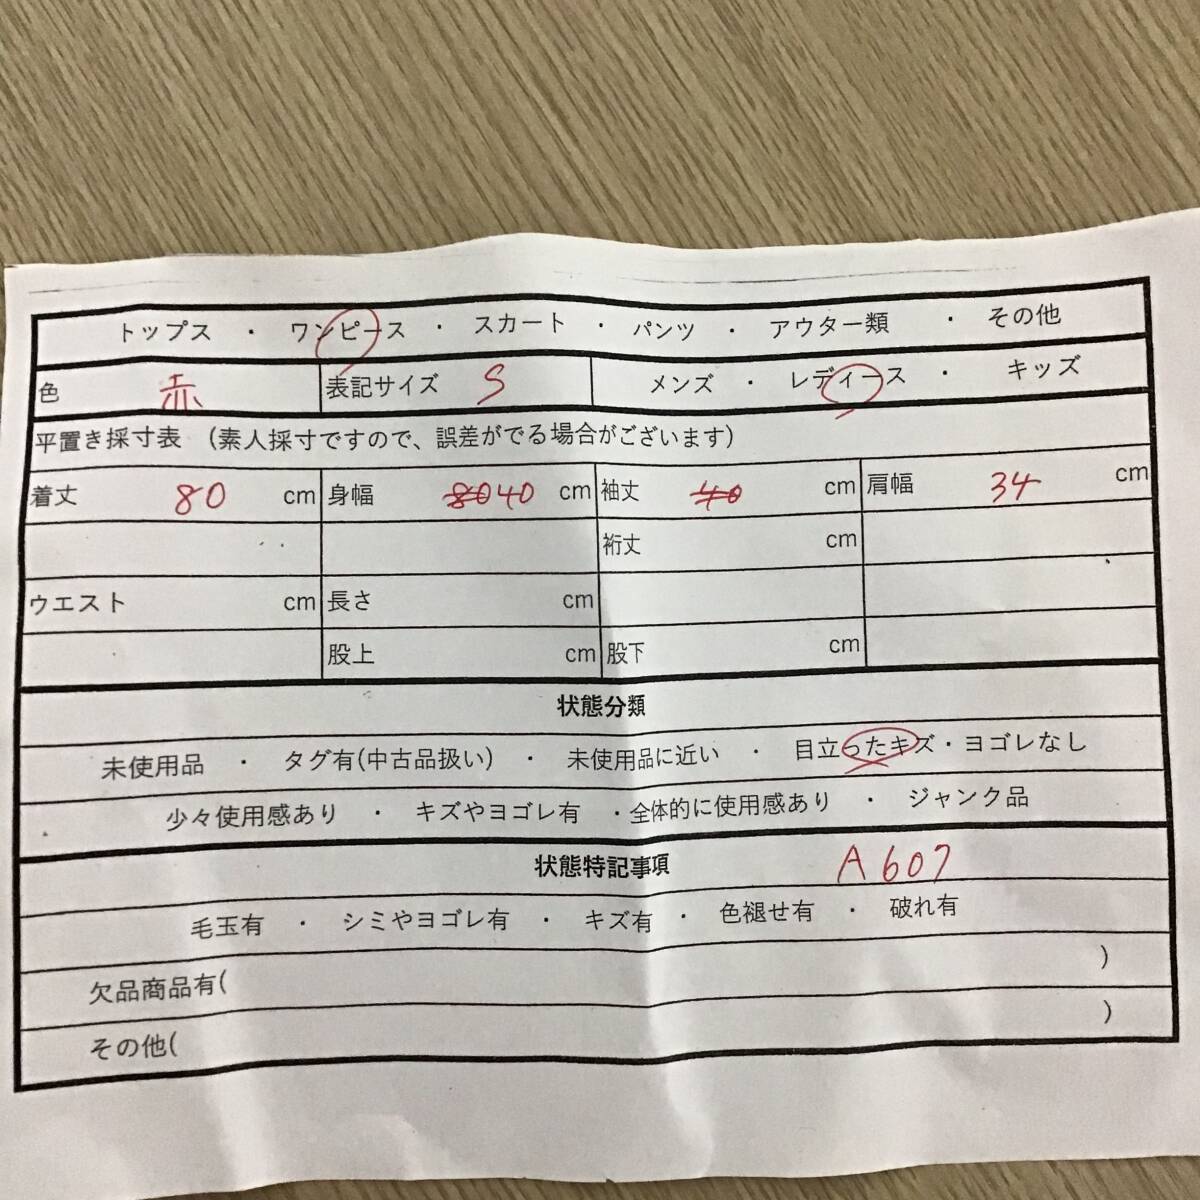 トップス ・ ワンピース ・ スカート ・ パンツ ・ アウター類 ・ その他
色 赤 表記サイズ S メンズ ・ レディース ・ キッズ
平置き採寸表 (素人採寸ですので、誤差がでる場合がございます)
着丈 80 cm 身幅 80 40 cm 袖丈 40 cm 肩幅 34 cm
裄丈 cm
ウエスト cm 長さ cm
股上 cm 股下 cm
状態分類
未使用品 ・ タグ有(中古品扱い) ・ 未使用品に近い ・ 目立ったキズ・ヨゴレなし
少々使用感あり ・ キズやヨゴレ有 ・全体的に使用感あり ・ ジャンク品
状態特記事項 A607
毛玉有 ・ シミやヨゴレ有 ・ キズ有 ・ 色褪せ有 ・ 破れ有
欠品商品有( )
その他( )